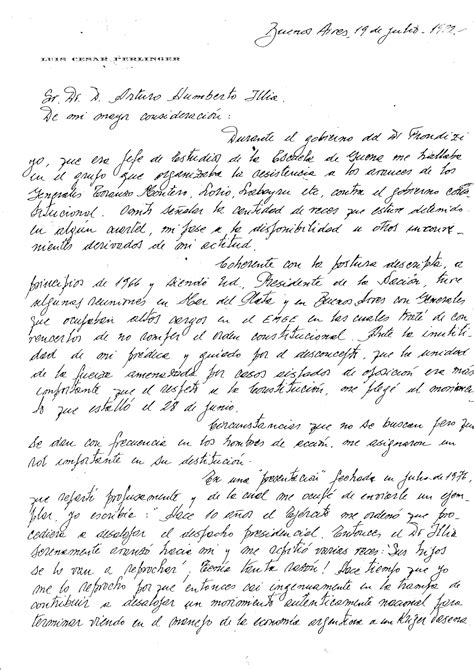 Buenos Aires, 19 de julio - 1982.-
LUIS CESAR PERLINGER
Sr. Dr. D. Arturo Humberto Illia.
De mi mayor consideración:
Durante el gobierno del Dr Frondizi
yo, que era Jefe de Estudios de la Escuela de Guerra me hallaba
en el grupo que organizaba la resistencia a los avances de los
Generales Toranzo Montero, Labayru etc, contra el gobierno cons
titucional. Omito señalar la cantidad de veces que estuve detenido
en algún cuartel, mi pase a la disponibilidad u otros inconve-
nientes derivados de mi actitud.
Coherente con la postura descripta, a
principios de 1966 y siendo Ud. Presidente de la Nación, tuve
algunas reuniones en Mar del Plata y en Buenos Aires con Generales
que ocupaban altos cargos en el EMGE en las cuales traté de con
vencerlos de no romper el orden constitucional. Ante la inutili
dad de mi prédica y guiado por el desconcepto, que la unidad
de la fuerza amenazada por casos aislados de oposición era más
importante que el respeto a la Constitución, me plegué al movimien
to que estalló el 28 de junio.
Circunstancias que no se buscan pero que
se dan con frecuencia en los hombres de acción, me asignaron un
rol importante en su destitución.
En una "presentación" fechada en julio de 1976,
que repartí profusamente y de la cual me ocupé de enviarle un ejem
plar, yo escribía: "Hace 10 años el Ejército me ordenó que pro
cediera a desalojar el despacho presidencial. Entonces el Dr Illia
serenamente avanzó hacia mí y me repitió varias veces: Sus hijos
se lo van a reprochar; ¡Tenía tanta razón! Hace tiempo que yo
me lo reprocho porque entonces caí ingenuamente en la trampa de
contribuir a desalojar un movimiento auténticamente nacional para
terminar viendo en el manejo de la economía argentina a un Krieger Vasena